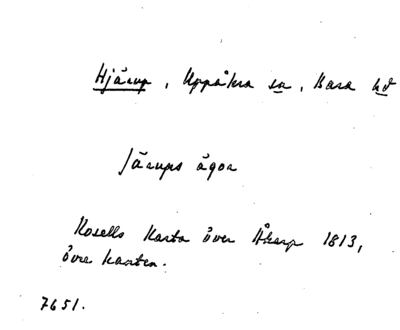 Hjärup, Uppåkra sn, Bara hd
Järups ägor
Rosells karta över Åkarp 1813,
övre kanten.
7651.